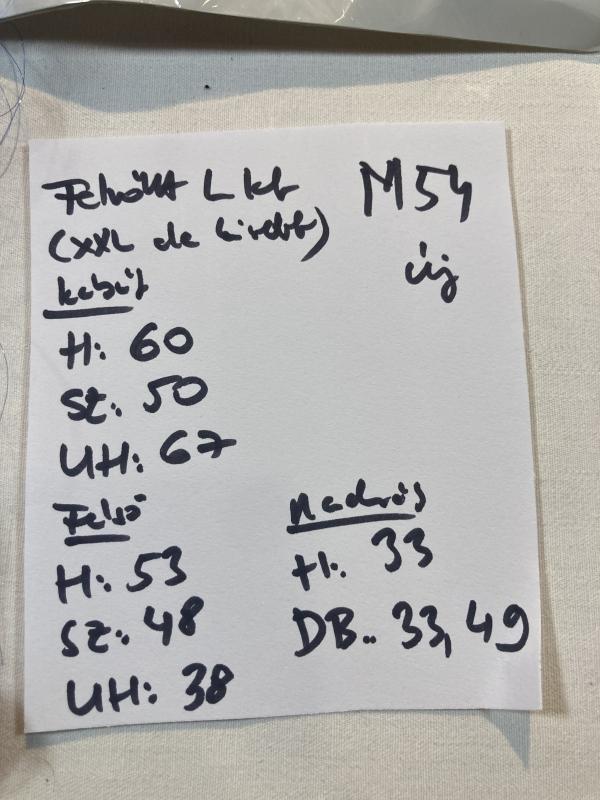 Felnőtt L kb
(XXL de kisebb)
M54
új
kabát
H: 60
SZ: 50
UH: 67
Felső
H: 53
SZ: 48
UH: 38
Nadrág
H: 33
DB.. 33, 49